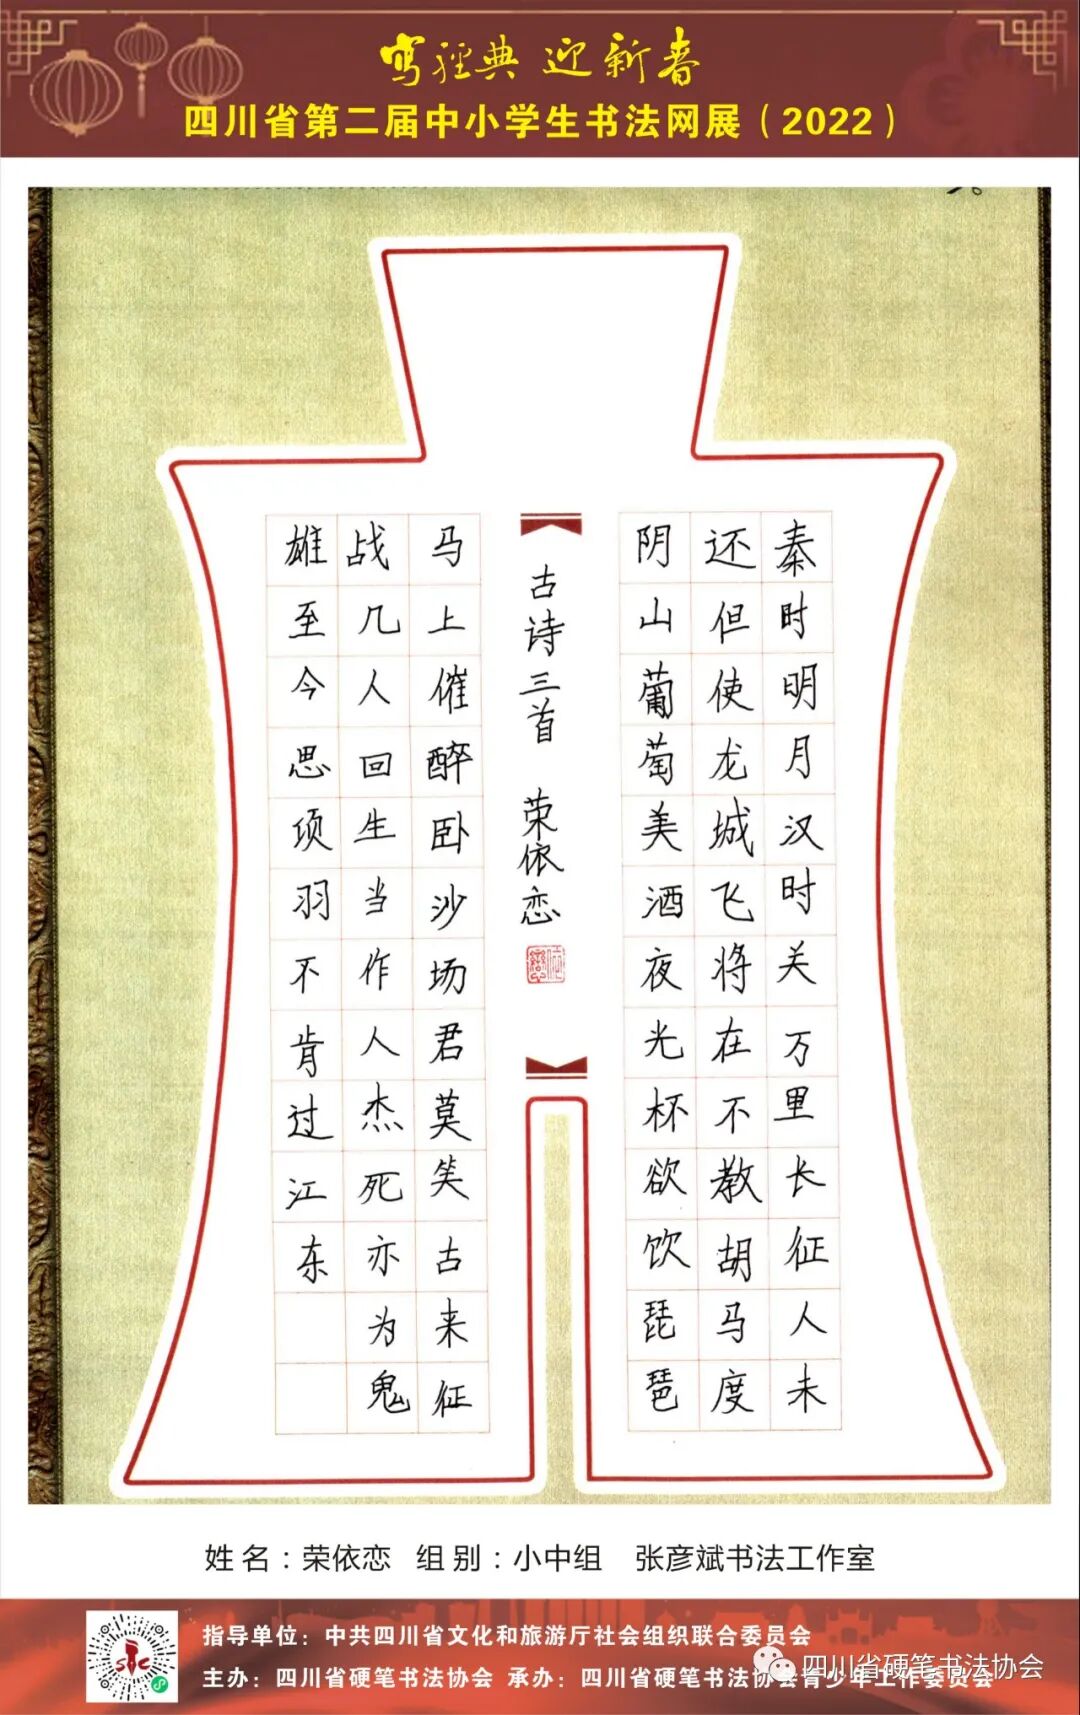 写经典 迎新春
四川省第二届中小学生书法网展（2022）
秦时明月汉时关万里长征人未
还但使龙城飞将在不教胡马度
阴山葡萄美酒夜光杯欲饮琵琶
古诗三首 荣依恋
马上催醉卧沙场君莫笑古来征
战几人回生当作人杰死亦为鬼
雄至今思项羽不肯过江东
姓名：荣依恋 组别：小中组 张彦斌书法工作室
指导单位：中共四川省文化和旅游厅社会组织联合委员会
主办：四川省硬笔书法协会 承办：四川省硬笔书法协会青少年工作委员会
四川省硬笔书法协会